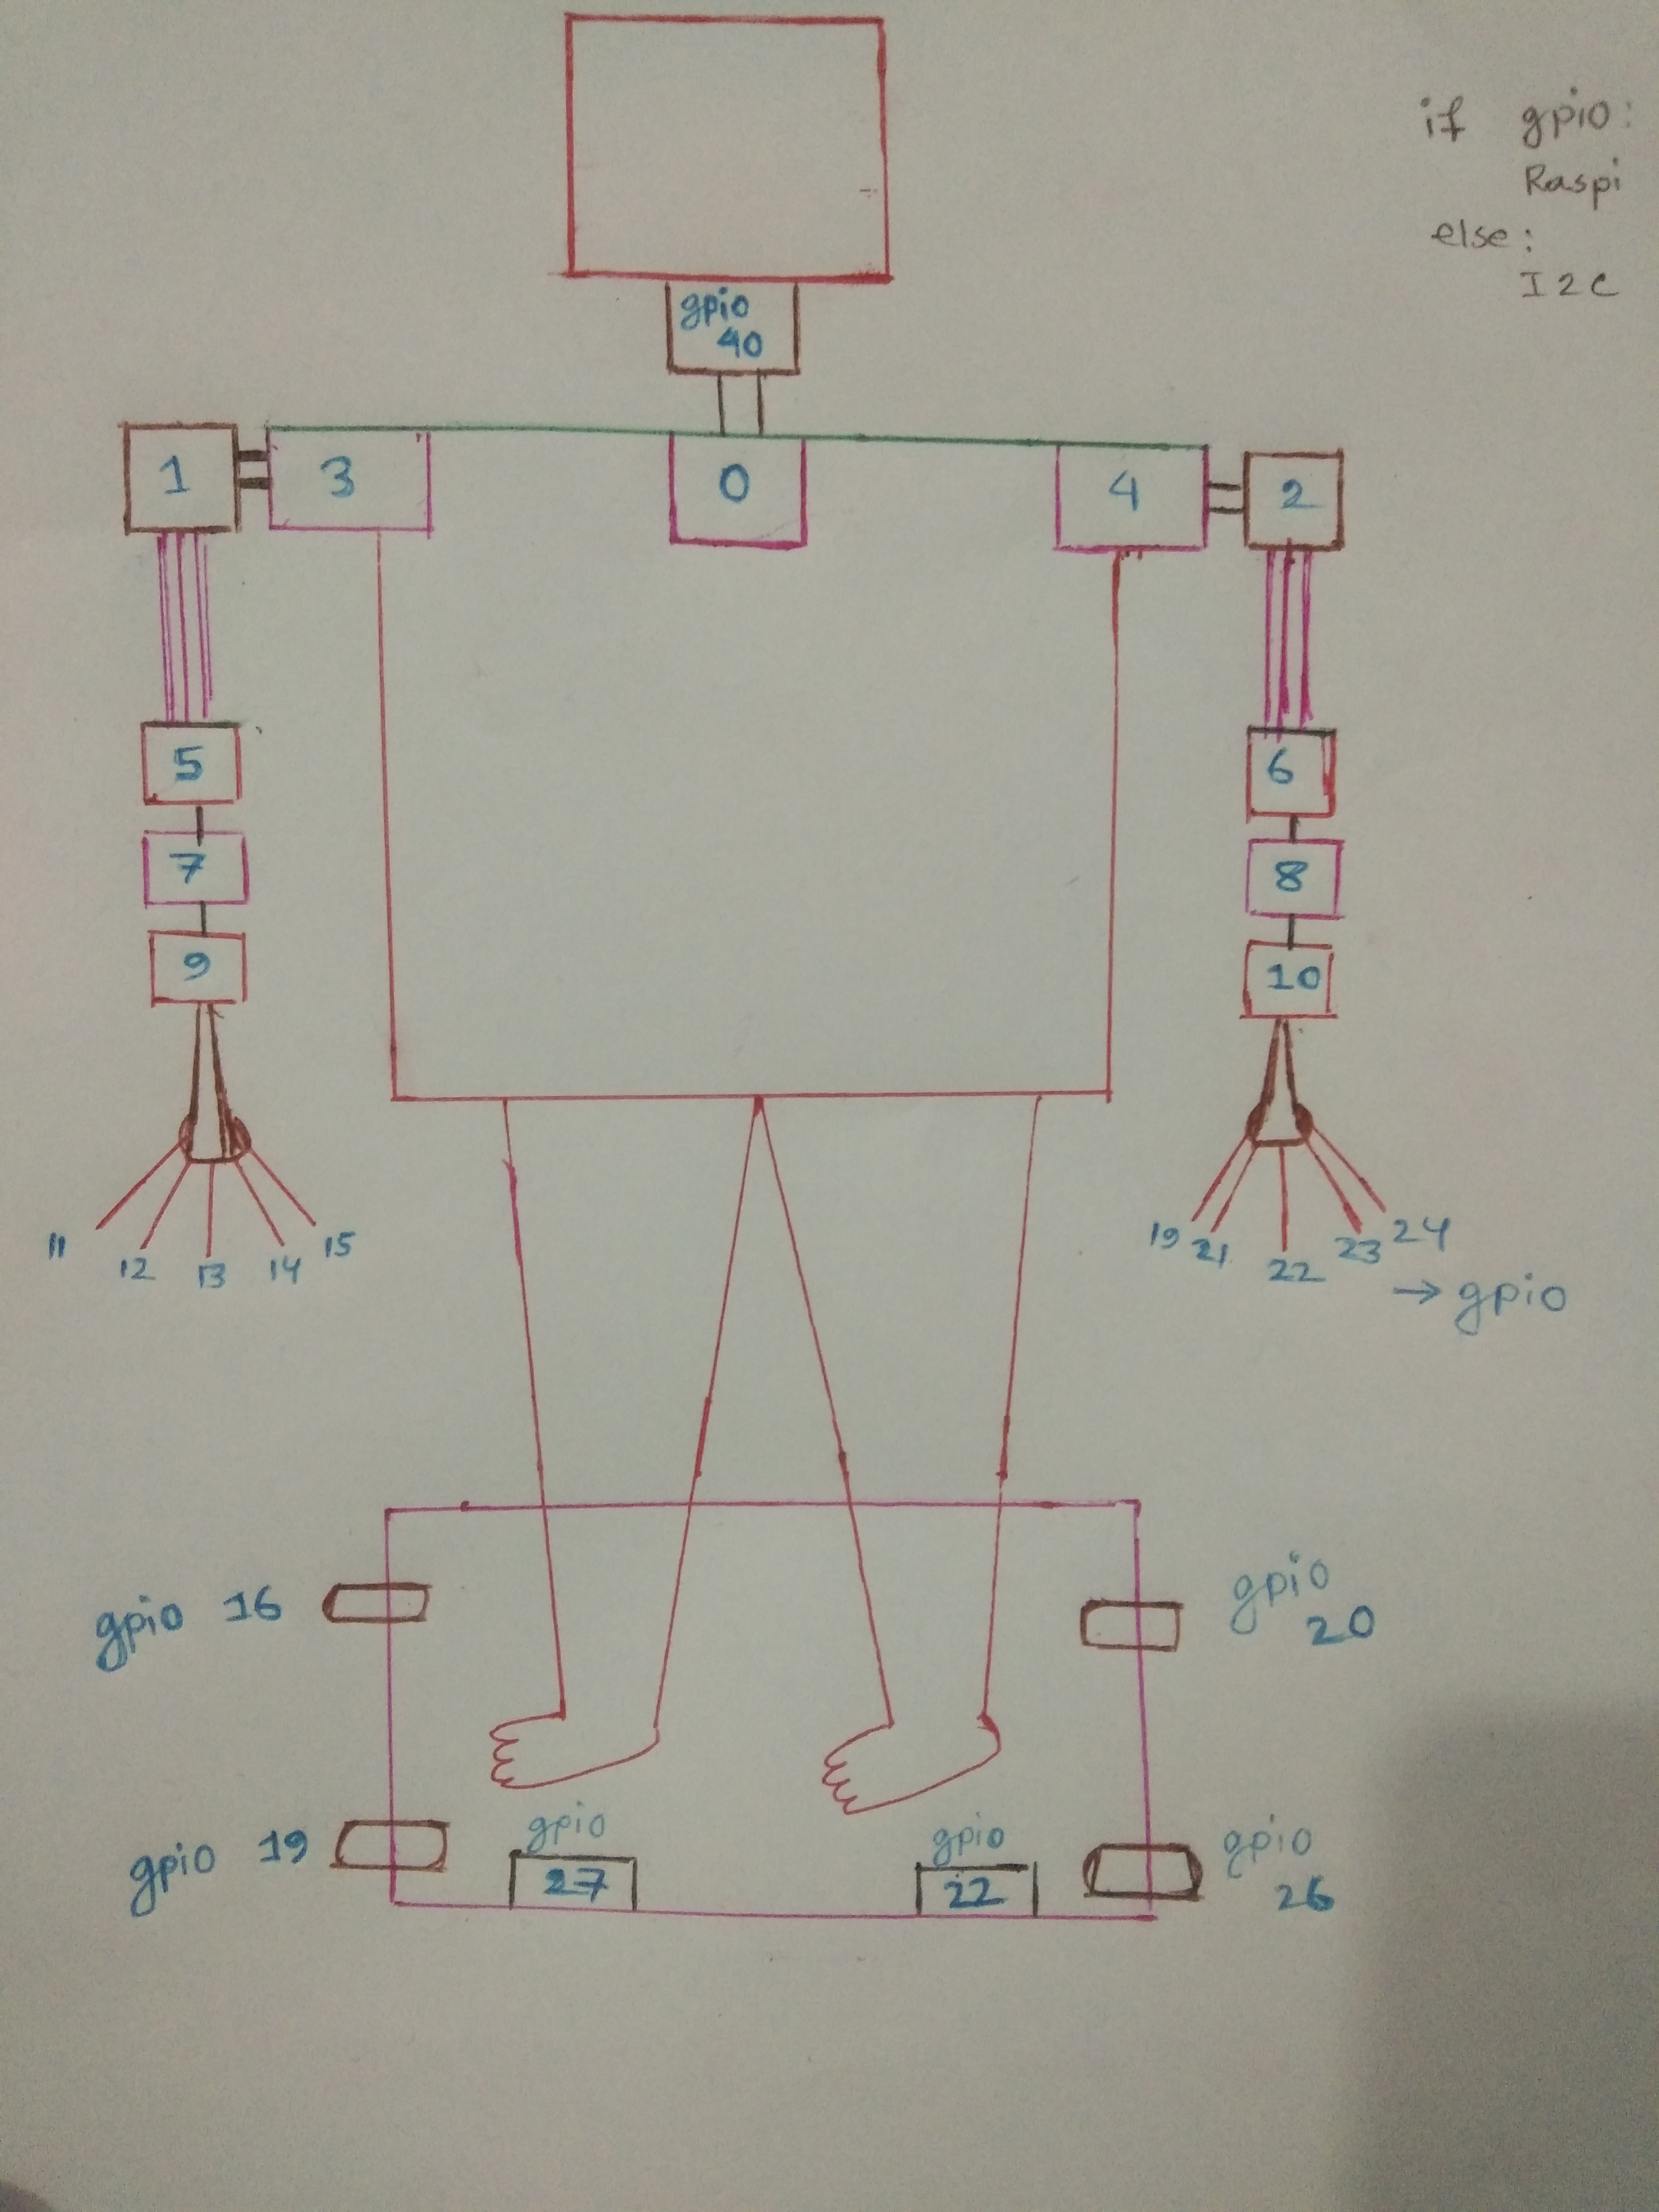 if gpio:
Raspi
else:
I2C
gpio
40
1
3
0
4
2
5
6
7
8
9
10
11
12
13
14
15
19
21
22
23
24
→ gpio
gpio 16
gpio
20
gpio 19
gpio
27
gpio
22
gpio
26